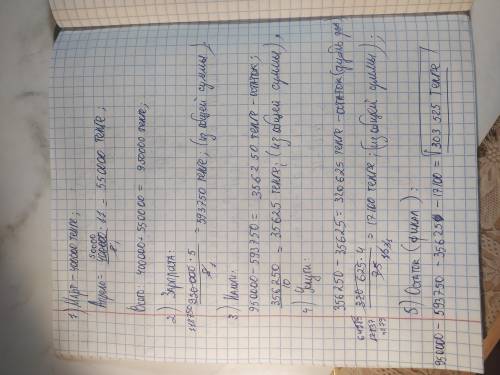 1) Март - 400000 тенге;
Апрель = 400000 · 11 = 550000 тенге;
50000
8 1
Всего: 400000 + 550000 = 950000 тенге;
2) Зарплата:
118750 950 000 · 5 / 8 1 = 593750 тенге; (из общей суммы);
3) Налог:
950000 - 593750 = 356250 тенге - остаток;
356250 / 10 = 35625 тенге; (из общей суммы);
4) Услуги:
356250 - 35625 = 320625 тенге - остаток
320 625 · 4 / 75 = 17100 тенге; (из общей суммы);
5) Остаток (финал):
950000 - 593750 - 35625 - 17100 = 303 525 тенге